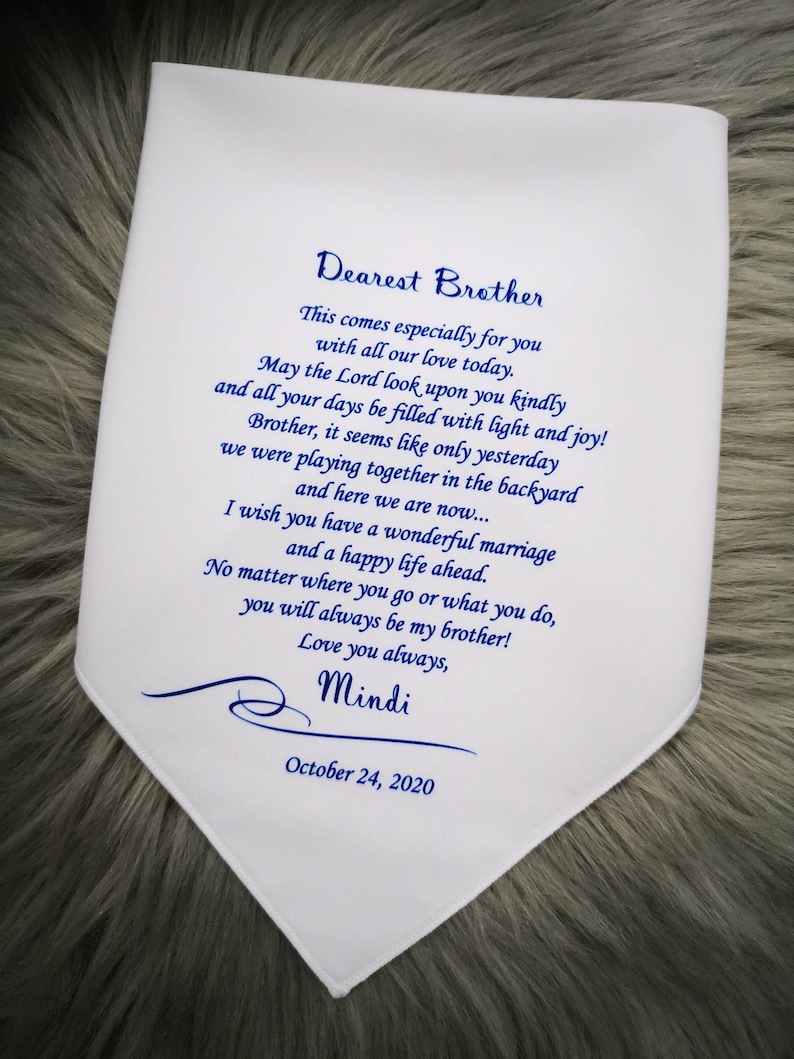 Dearest Brother
This comes especially for you
with all our love today.
May the Lord look upon you kindly
and all your days be filled with light and joy!
Brother, it seems like only yesterday
we were playing together in the backyard
and here we are now...
I wish you have a wonderful marriage
and a happy life ahead.
No matter where you go or what you do,
you will always be my brother!
Love you always,
Mindi
October 24, 2020